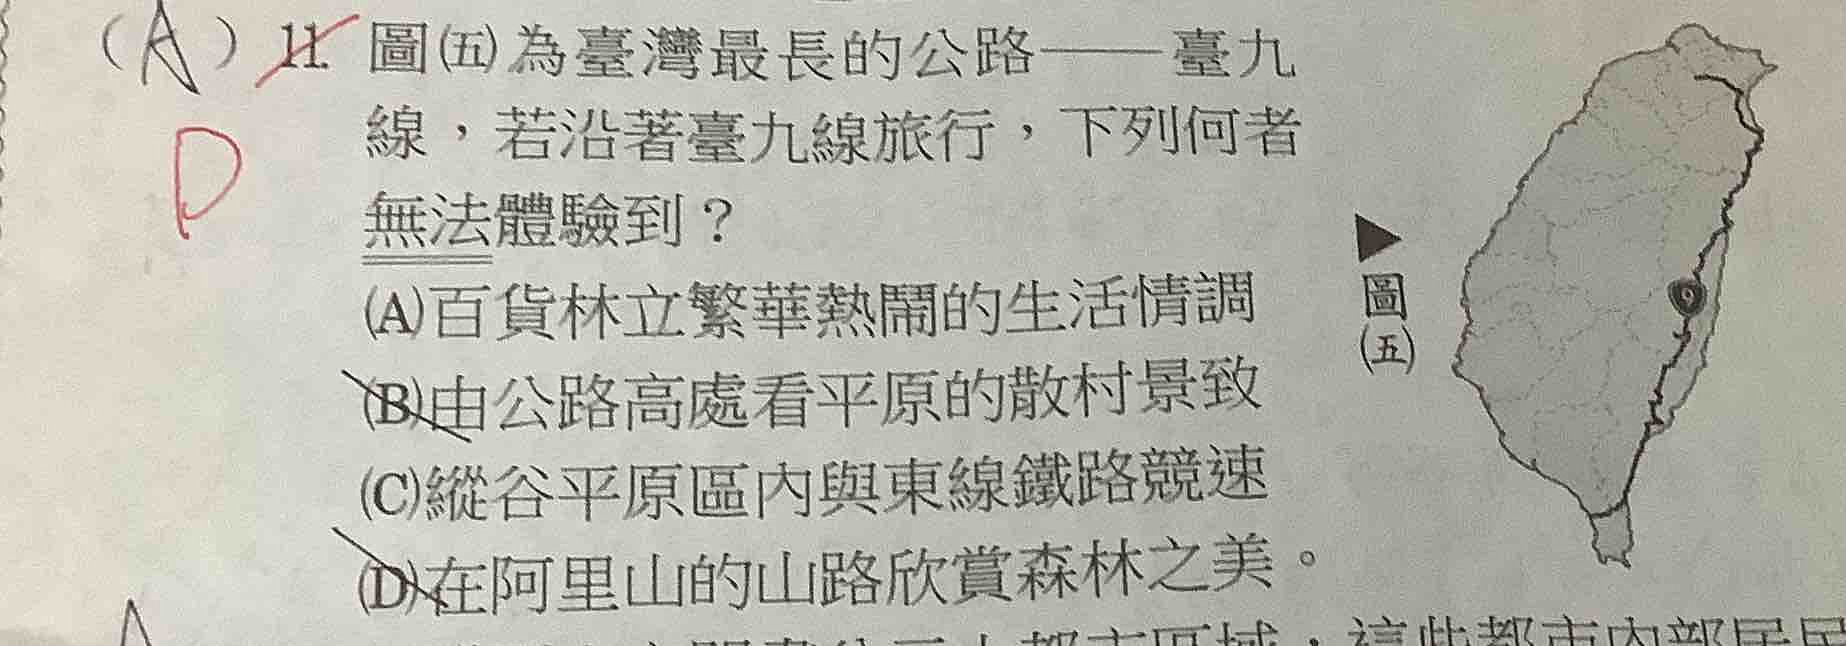 (A) 11. 圖(五)為臺灣最長的公路——臺九
D
線，若沿著臺九線旅行，下列何者
無法體驗到？
(A)百貨林立繁華熱鬧的生活情調
(B)由公路高處看平原的散村景致
(C)縱谷平原區內與東線鐵路競速
(D)在阿里山的山路欣賞森林之美。
▶
圖
(五)